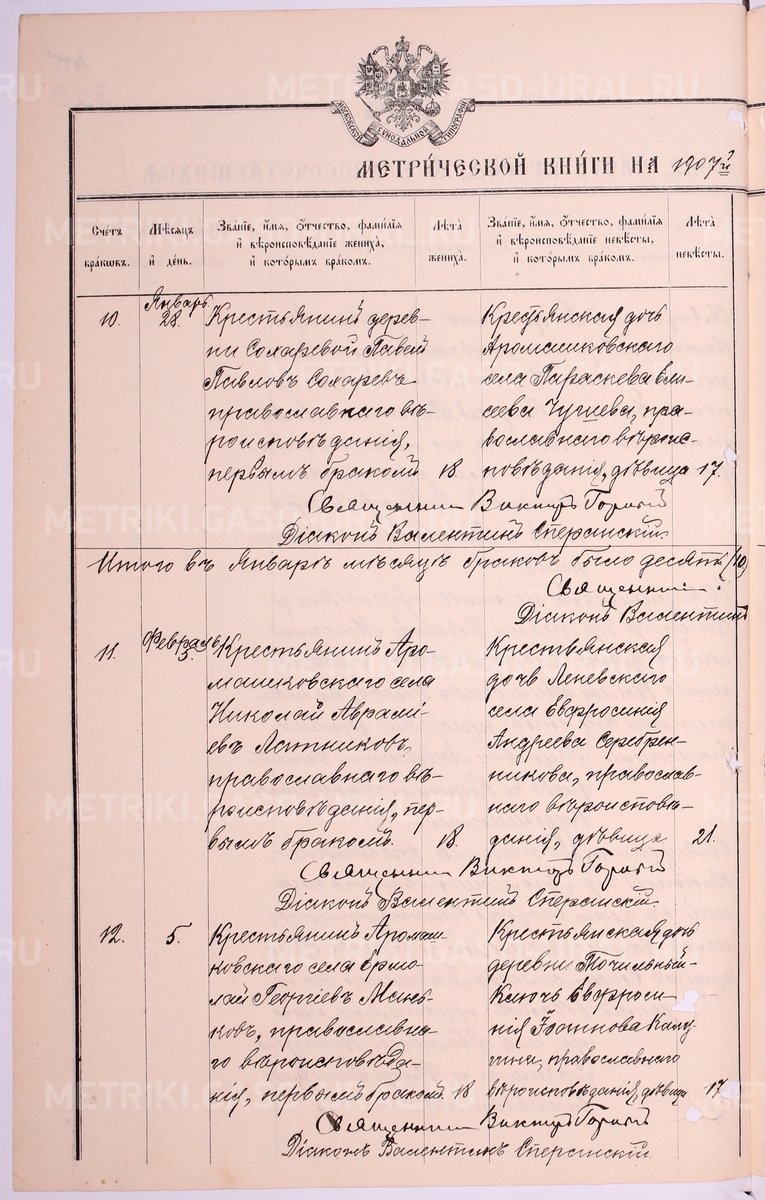 МОСКОВСКОЙ СѴНОДАЛЬНОЙ ТИПОГРАФІИ
МЕТРИ́ЧЕСКОЙ КНИ́ГИ НА 1907й
Счетъ браковъ.
Мѣсяцъ и день.
Званіе, имя, отчество, фамилія и вѣроисповѣданіе жениха, и которымъ бракомъ.
Лѣта жениха.
Званіе, имя, отчество, фамилія и вѣроисповѣданіе невѣсты, и которымъ бракомъ.
Лѣта невѣсты.
10.
Январь
28.
Крестьянинъ дерев-
ни Сохаревой Павелъ
Павловъ Сохаревъ
православнаго вѣ-
роисповѣданія,
первымъ бракомъ
18.
Крестьянская дочь
Аромашковскаго
села Параскева Ели-
сеева
пра-
вославнаго вѣроис-
повѣданія, дѣвица
17.
Священникъ Викторъ
Діаконъ Валентинъ Сперанскій.
Итого въ Январѣ мѣсяцѣ браковъ было десять (10)
Священникъ
Діаконъ Валентинъ
11.
Февраль
5.
Крестьянинъ Аро-
машковскаго села
Николай Аврамі-
евъ Латниковъ,
православнаго вѣ-
роисповѣданія, пер-
вымъ бракомъ.
18.
Крестьянская
дочь Леневскаго
села Евфросинія
Андреева Серебрен-
никова, православ-
наго вѣроисповѣ-
данія, дѣвица
21.
Священникъ Викторъ
Діаконъ Валентинъ Сперанскій.
12.
5.
Крестьянинъ Аромаш-
ковскаго села Ермо-
лай Георгіевъ Мань-
ковъ, православна-
го вѣроисповѣда-
нія, первымъ бракомъ.
18
Крестьянская дочь
деревни Точильный-
Ключъ Евфроси-
нія Іоаннова Калу-
гина, православнаго
вѣроисповѣданія, дѣвица
17.
Священникъ Викторъ
Діаконъ Валентинъ Сперанскій.
METRIKI.GASO-URAL.RU